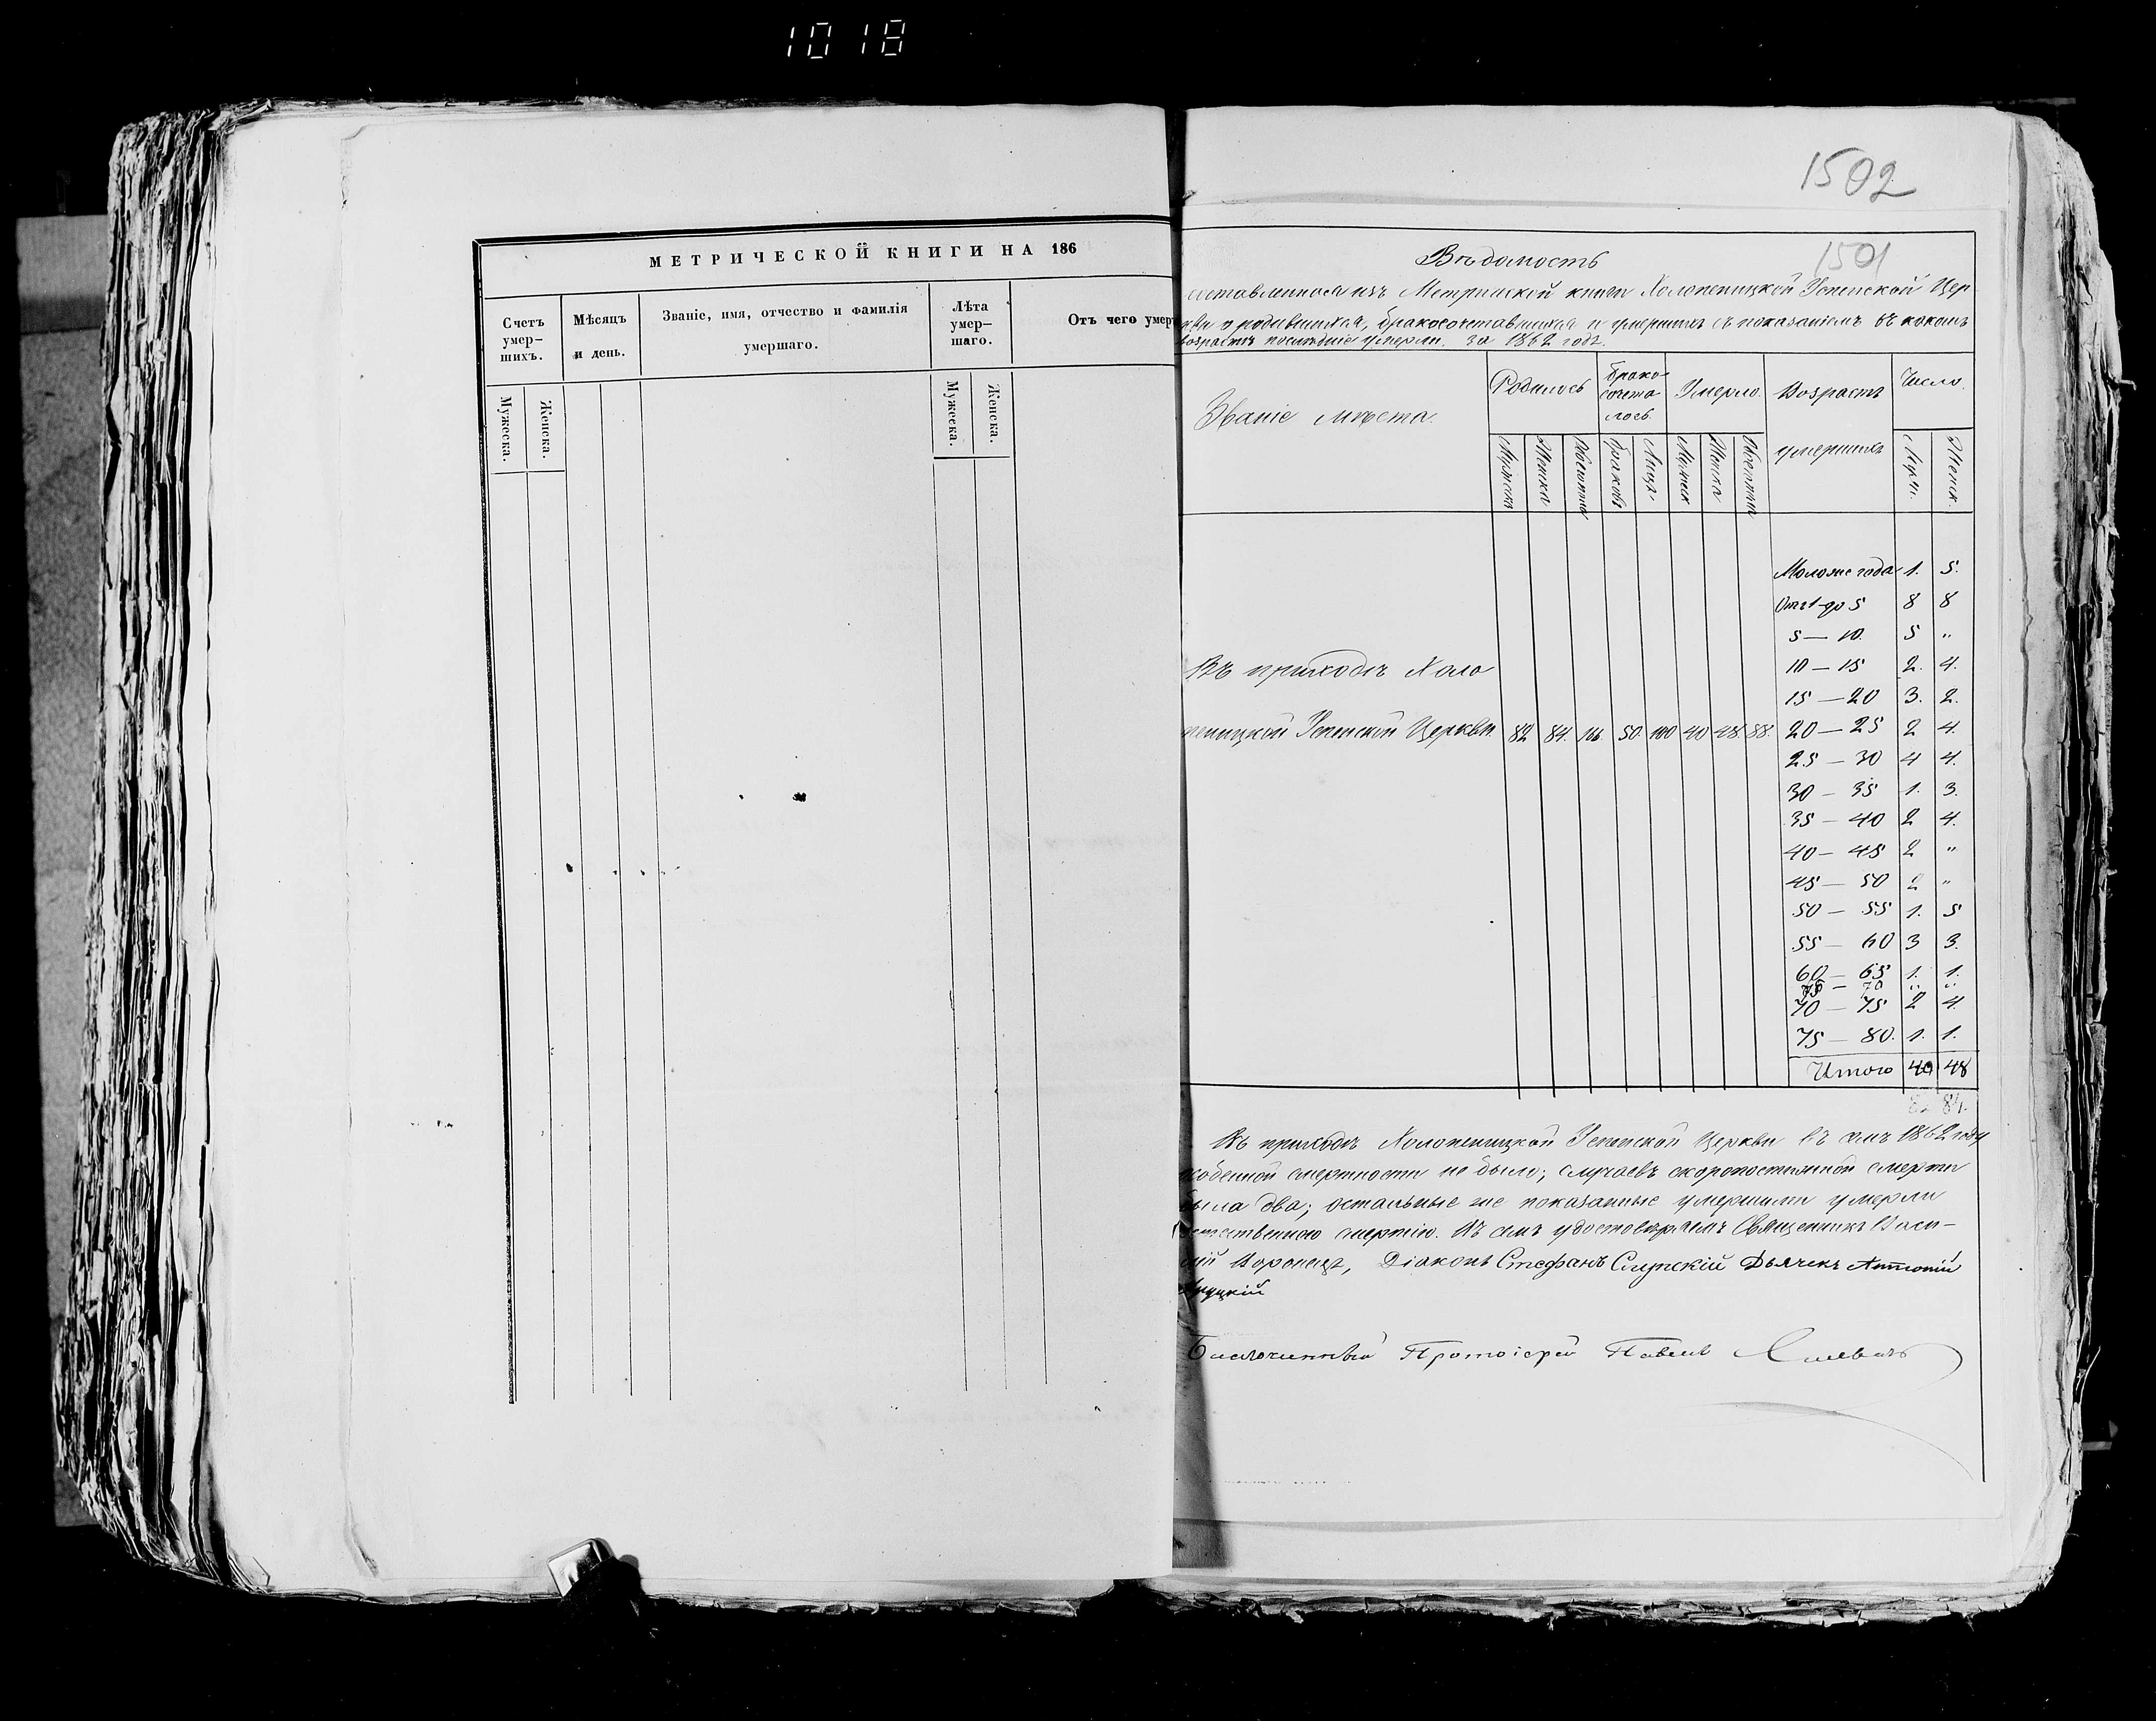 1018
МЕТРИЧЕСКОЙ КНИГИ НА 186
Счетъ умер-шихъ.
Мѣсяцъ и день.
Званіе, имя, отчество и фамилія умершаго.
Лѣта умер-шаго.
Отъ чего умер
Мужеска.
Женска.
Мужеска.
Женска.
1502
1501
Вѣдомость
составленная изъ Метрической книги Холопеницкой Успенской Цер
кви о родившихся, бракосочетавшихся и умершихъ съ показаніемъ въ какомъ
возрастѣ послѣдніе умерли. за 1862 годъ.
Званіе мѣста.
Родилось
Брако-сочета-лось.
Умерло.
Возрастъ умершихъ
Число.
Мужеска
Женска
Обоего пола
Браковъ
Лицъ
Мужеск
Женска
Муж.
Женск.
Моложе года 1. 5.
Отъ 1 до 5 8 8
5 — 10. 5 "
10 — 15 2. 4.
Въ приходѣ Холо
15 — 20 3. 2.
пеницкой Успенской Церкви. 82 84. 166. 50 100 40 48. 88. 20 — 25 2 4.
25 — 30 4 4.
30 — 35 1. 3.
35 — 40 2 4.
40 — 45 2 "
45 — 50 2 "
50 — 55 1. 5
55 — 60 3 3.
60 — 65 1. 1.
— 70 " "
70 — 75 2 4.
75 — 80. 1. 1.
Итого 40 48
82 84.
Въ приходѣ Холопеницкой Успенской Церкви въ семъ 1862 году
особенной смертности не было; случаевъ скоропостижной смерти
было два; остальные же показанные умершими умерли
естественною смертію. Въ семъ удостовѣряемъ Священникъ Васи-
лій Воронецъ, Діаконъ Стефанъ Слупскій Дьячекъ Антоній
Благочинный Протоіерей Павелъ